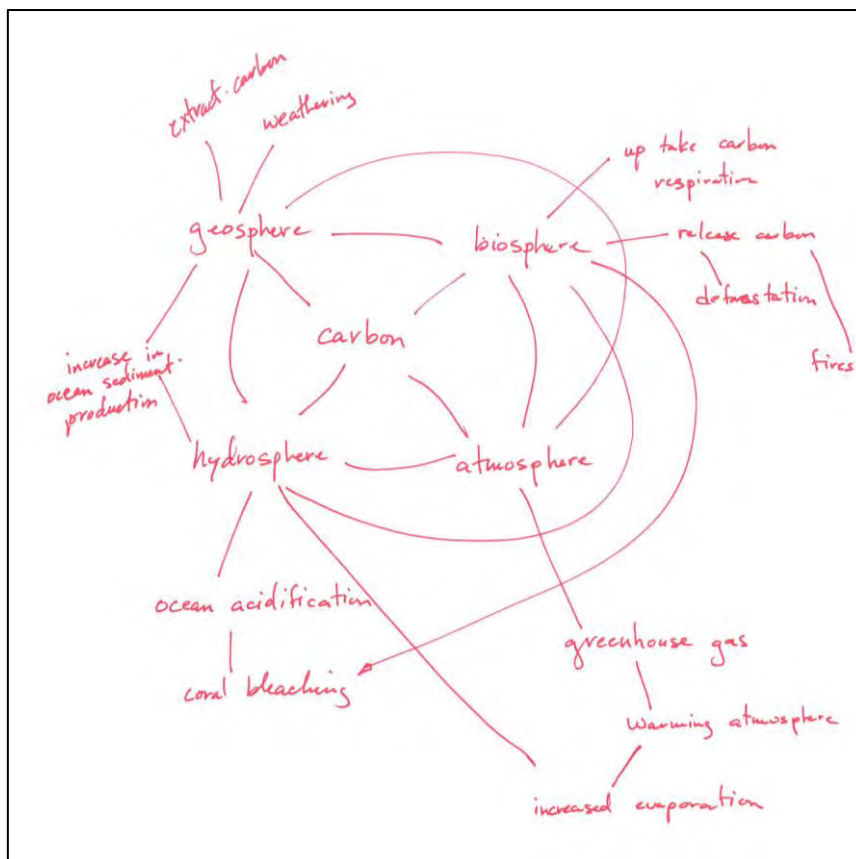 extract carbon
weathering
up take carbon
respiration
geosphere
biosphere
release carbon
deforestation
carbon
fires
increase in
ocean sediment
production
hydrosphere
atmosphere
ocean acidification
greenhouse gas
coral bleaching
warming atmosphere
increased evaporation